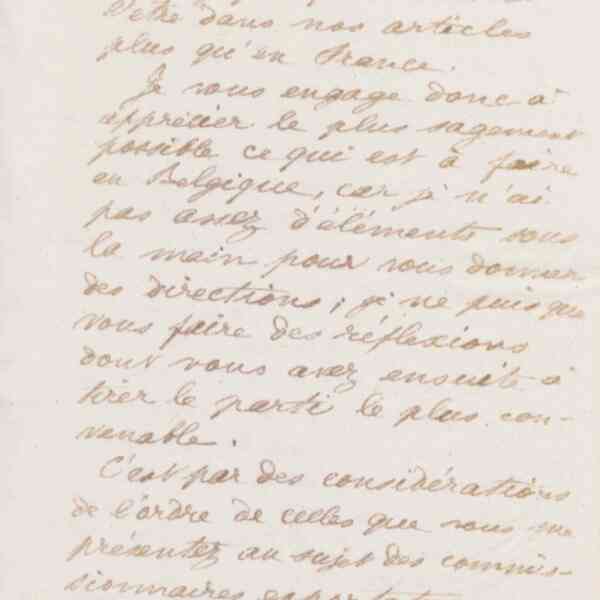 l'être dans nos articles
plus qu'en France.
Je vous engage donc à
apprécier le plus sagement
possible ce qui est à faire
en Belgique, car je n'ai
pas assez d'éléments sous
la main pour vous donner
des directions; je ne puis que
vous faire des réflexions
dont vous avez ensuite à
tirer le parti le plus con-
venable.
C'est par des considérations
de l'ordre de celles que vous me
présentez au sujet des commis-
sionnaires